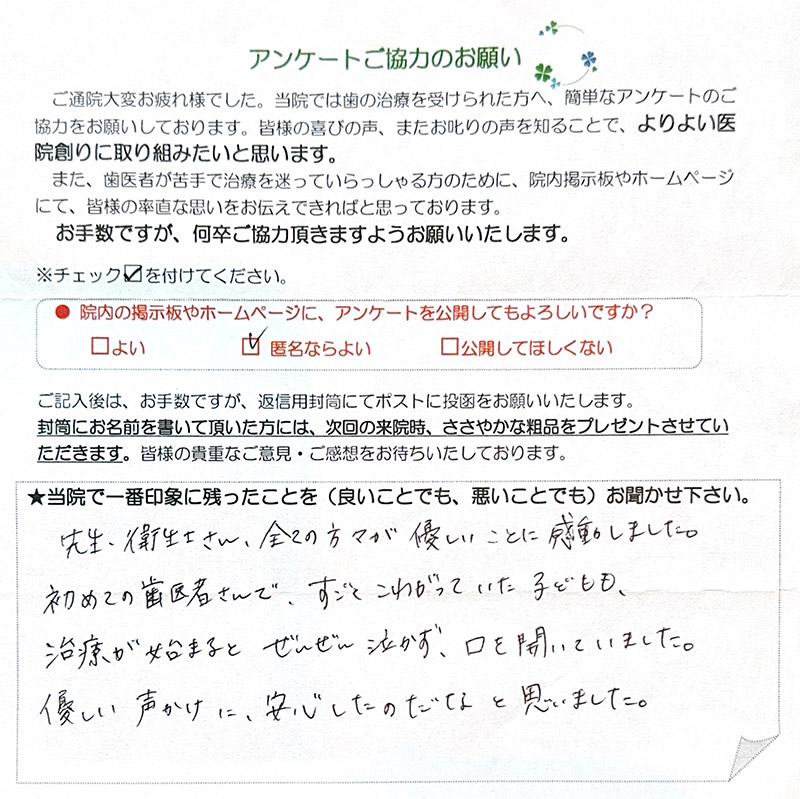 アンケートご協力のお願い
ご通院大変お疲れ様でした。当院では歯の治療を受けられた方へ、簡単なアンケートのご
協力をお願いしております。皆様の喜びの声、またお叱りの声を知ることで、よりよい医
院創りに取り組みたいと思います。
また、歯医者が苦手で治療を迷っていらっしゃる方のために、院内掲示板やホームページ
にて、皆様の率直な思いをお伝えできればと思っております。
お手数ですが、何卒ご協力頂きますようお願いいたします。
※チェック☑を付けてください。
● 院内の掲示板やホームページに、アンケートを公開してもよろしいですか？
□よい ☑匿名ならよい □公開してほしくない
ご記入後は、お手数ですが、返信用封筒にてポストに投函をお願いいたします。
封筒にお名前を書いて頂いた方には、次回の来院時、ささやかな粗品をプレゼントさせてい
ただきます。皆様の貴重なご意見・ご感想をお待ちいたしております。
★当院で一番印象に残ったことを（良いことでも、悪いことでも）お聞かせ下さい。
先生、衛生士さん、全ての方々が優しいことに感動しました。
初めての歯医者さんで、すごくこわがっていた子どもも、
治療が始まるとぜんぜん泣かず、口を開いていました。
優しい声かけに、安心したのだなと思いました。